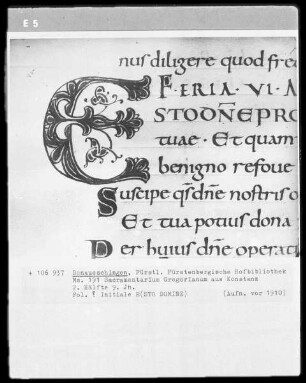 E 5
nus diligere quod fre
FERIA·VI·A
STO DÑE PRO
tuae · Et quam
benigno refoue
Suscipe qs dñe nostris o
Et tua potius dona
Per huius dñe operati
+ 106 937 Donaueschingen, Fürstl. Fürstenbergische Hofbibliothek
Ms. 191 Sacramentarium Gregorianum aus Konstanz
2. Hälfte 9. Jh.
Fol. ? Initiale E(STO DOMINE) (Aufn. vor 1910)